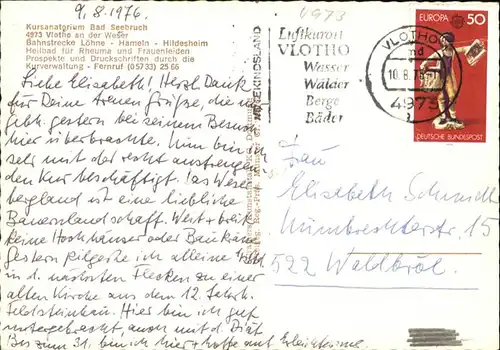 9.8.1976
4973
Kursanatorium Bad Seebruch
4973 Vlotho an der Weser
Bahnstrecke Löhne - Hameln - Hildesheim
Heilbad für Rheuma und Frauenleiden
Prospekte und Druckschriften durch die
Kurverwaltung - Fernruf (05733) 25 66
Liebe Elisabeth! Herzl. Dank
für Deine treuen Grüße, die
gestern bei seinem Besuch
hier überbrachte. Nun bin ich
mit der recht anstrengen
den Kur beschäftigt! Das Weser
bergland ist eine liebliche
Bauernlandschaft. Weit + breit
keine Hochhäuser oder Baukräne
Gestern pilgerte ich alleine
in d. nächsten Flecken zu einer
alten Kirche aus dem 12. Jahrh.
Feldsteinbau. Hier bin ich gut
untergebracht, auch mit d. Diät
Bis zum 31. bin ich hier + hoffe auf Erleichterung
WITTEKINDSLAND
Luftkurort
VLOTHO
Wasser
Wälder
Berge
Bäder
VLOTHO
10.8.76
4973
a
EUROPA 50
DEUTSCHE BUNDESPOST
Frau
Elisabeth Schmidt
Nümbrechterstr. 15
522 Waldbröl